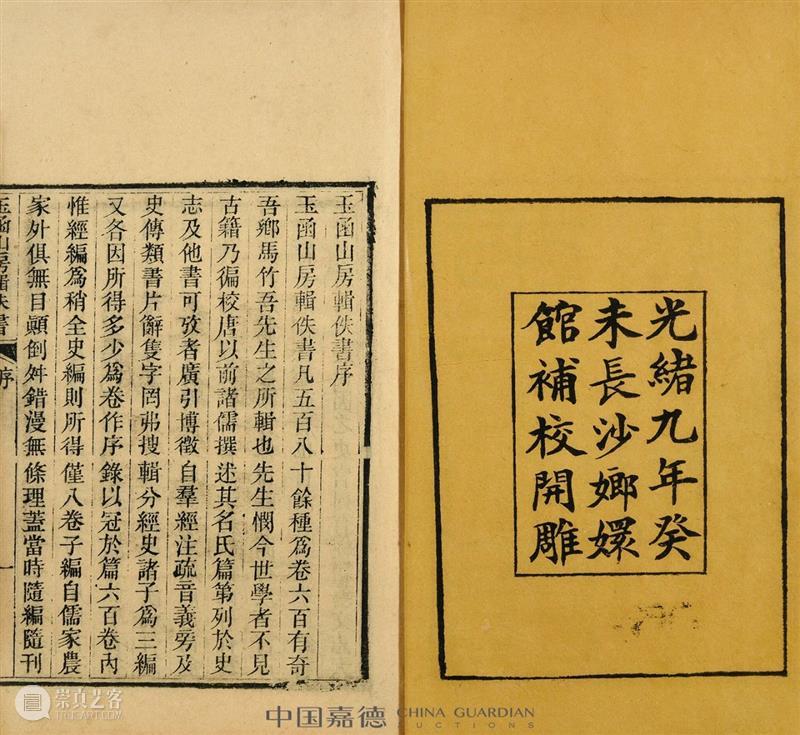 光緒九年癸
未長沙嫏嬛
館補校開雕
玉函山房輯佚書序
玉函山房輯佚書凡五百八十餘種爲卷六百有奇
吾鄉馬竹吾先生之所輯也先生憫今世學者不見
古籍乃徧校唐以前諸儒撰述其名氏篇第列於史
志及他書可攷者廣引博徵自羣經注疏音義旁及
史傳類書片辭隻字罔弗搜輯分經史諸子爲三編
又各因所得多少爲卷作序錄以冠於篇六百卷內
惟經編爲稍全史編則所得僅八卷子編自儒家農
家外俱無目顚倒舛錯漫無條理蓋當時隨編隨刊
玉函山房輯佚書
序
一
崇真艺客
TRUE-ART.COM
中国嘉德 CHINA GUARDIAN
AUCTIONS